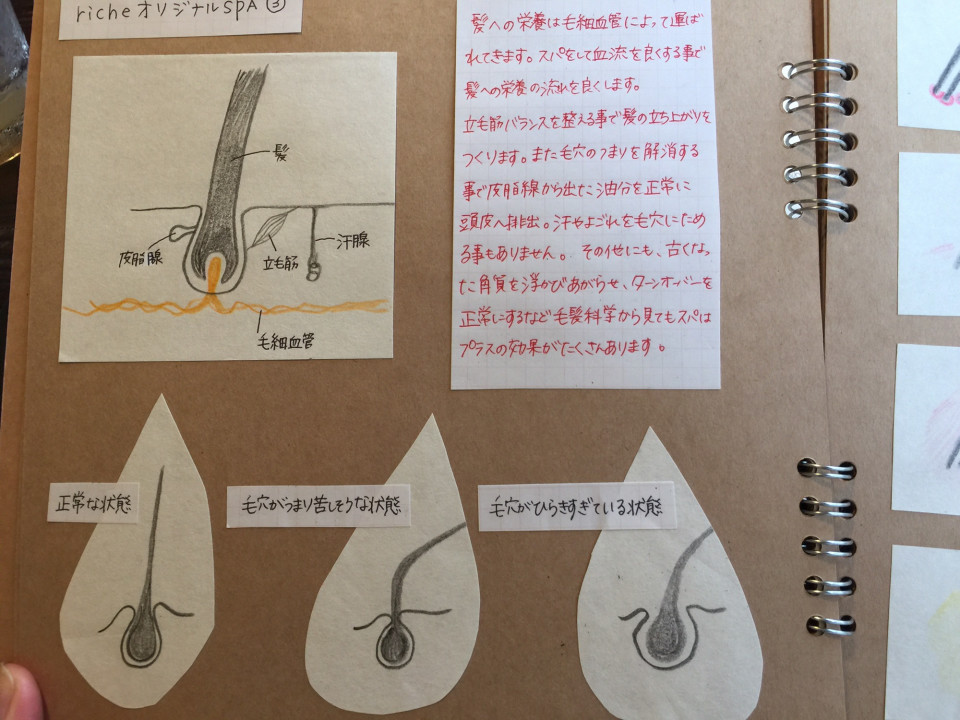 richeオリジナルSPA③
髪への栄養は毛細血管によって運ば
れてきます。スパをして血流を良くする事で
髪への栄養の流れを良くします。
立毛筋バランスを整える事で髪の立ち上がりを
つくります。また毛穴のつまりを解消する
事で皮脂線から出た油分を正常に
頭皮へ排出。汗やよごれを毛穴にため
る事もありません。その他にも、古くなっ
た角質を浮かびあがらせ、ターンオーバーを
正常にするなど毛髪科学から見てもスパは
プラスの効果がたくさんあります。
髪
皮脂腺
立毛筋
汗腺
毛細血管
正常な状態
毛穴がつまり苦しそうな状態
毛穴がひらきすぎている状態